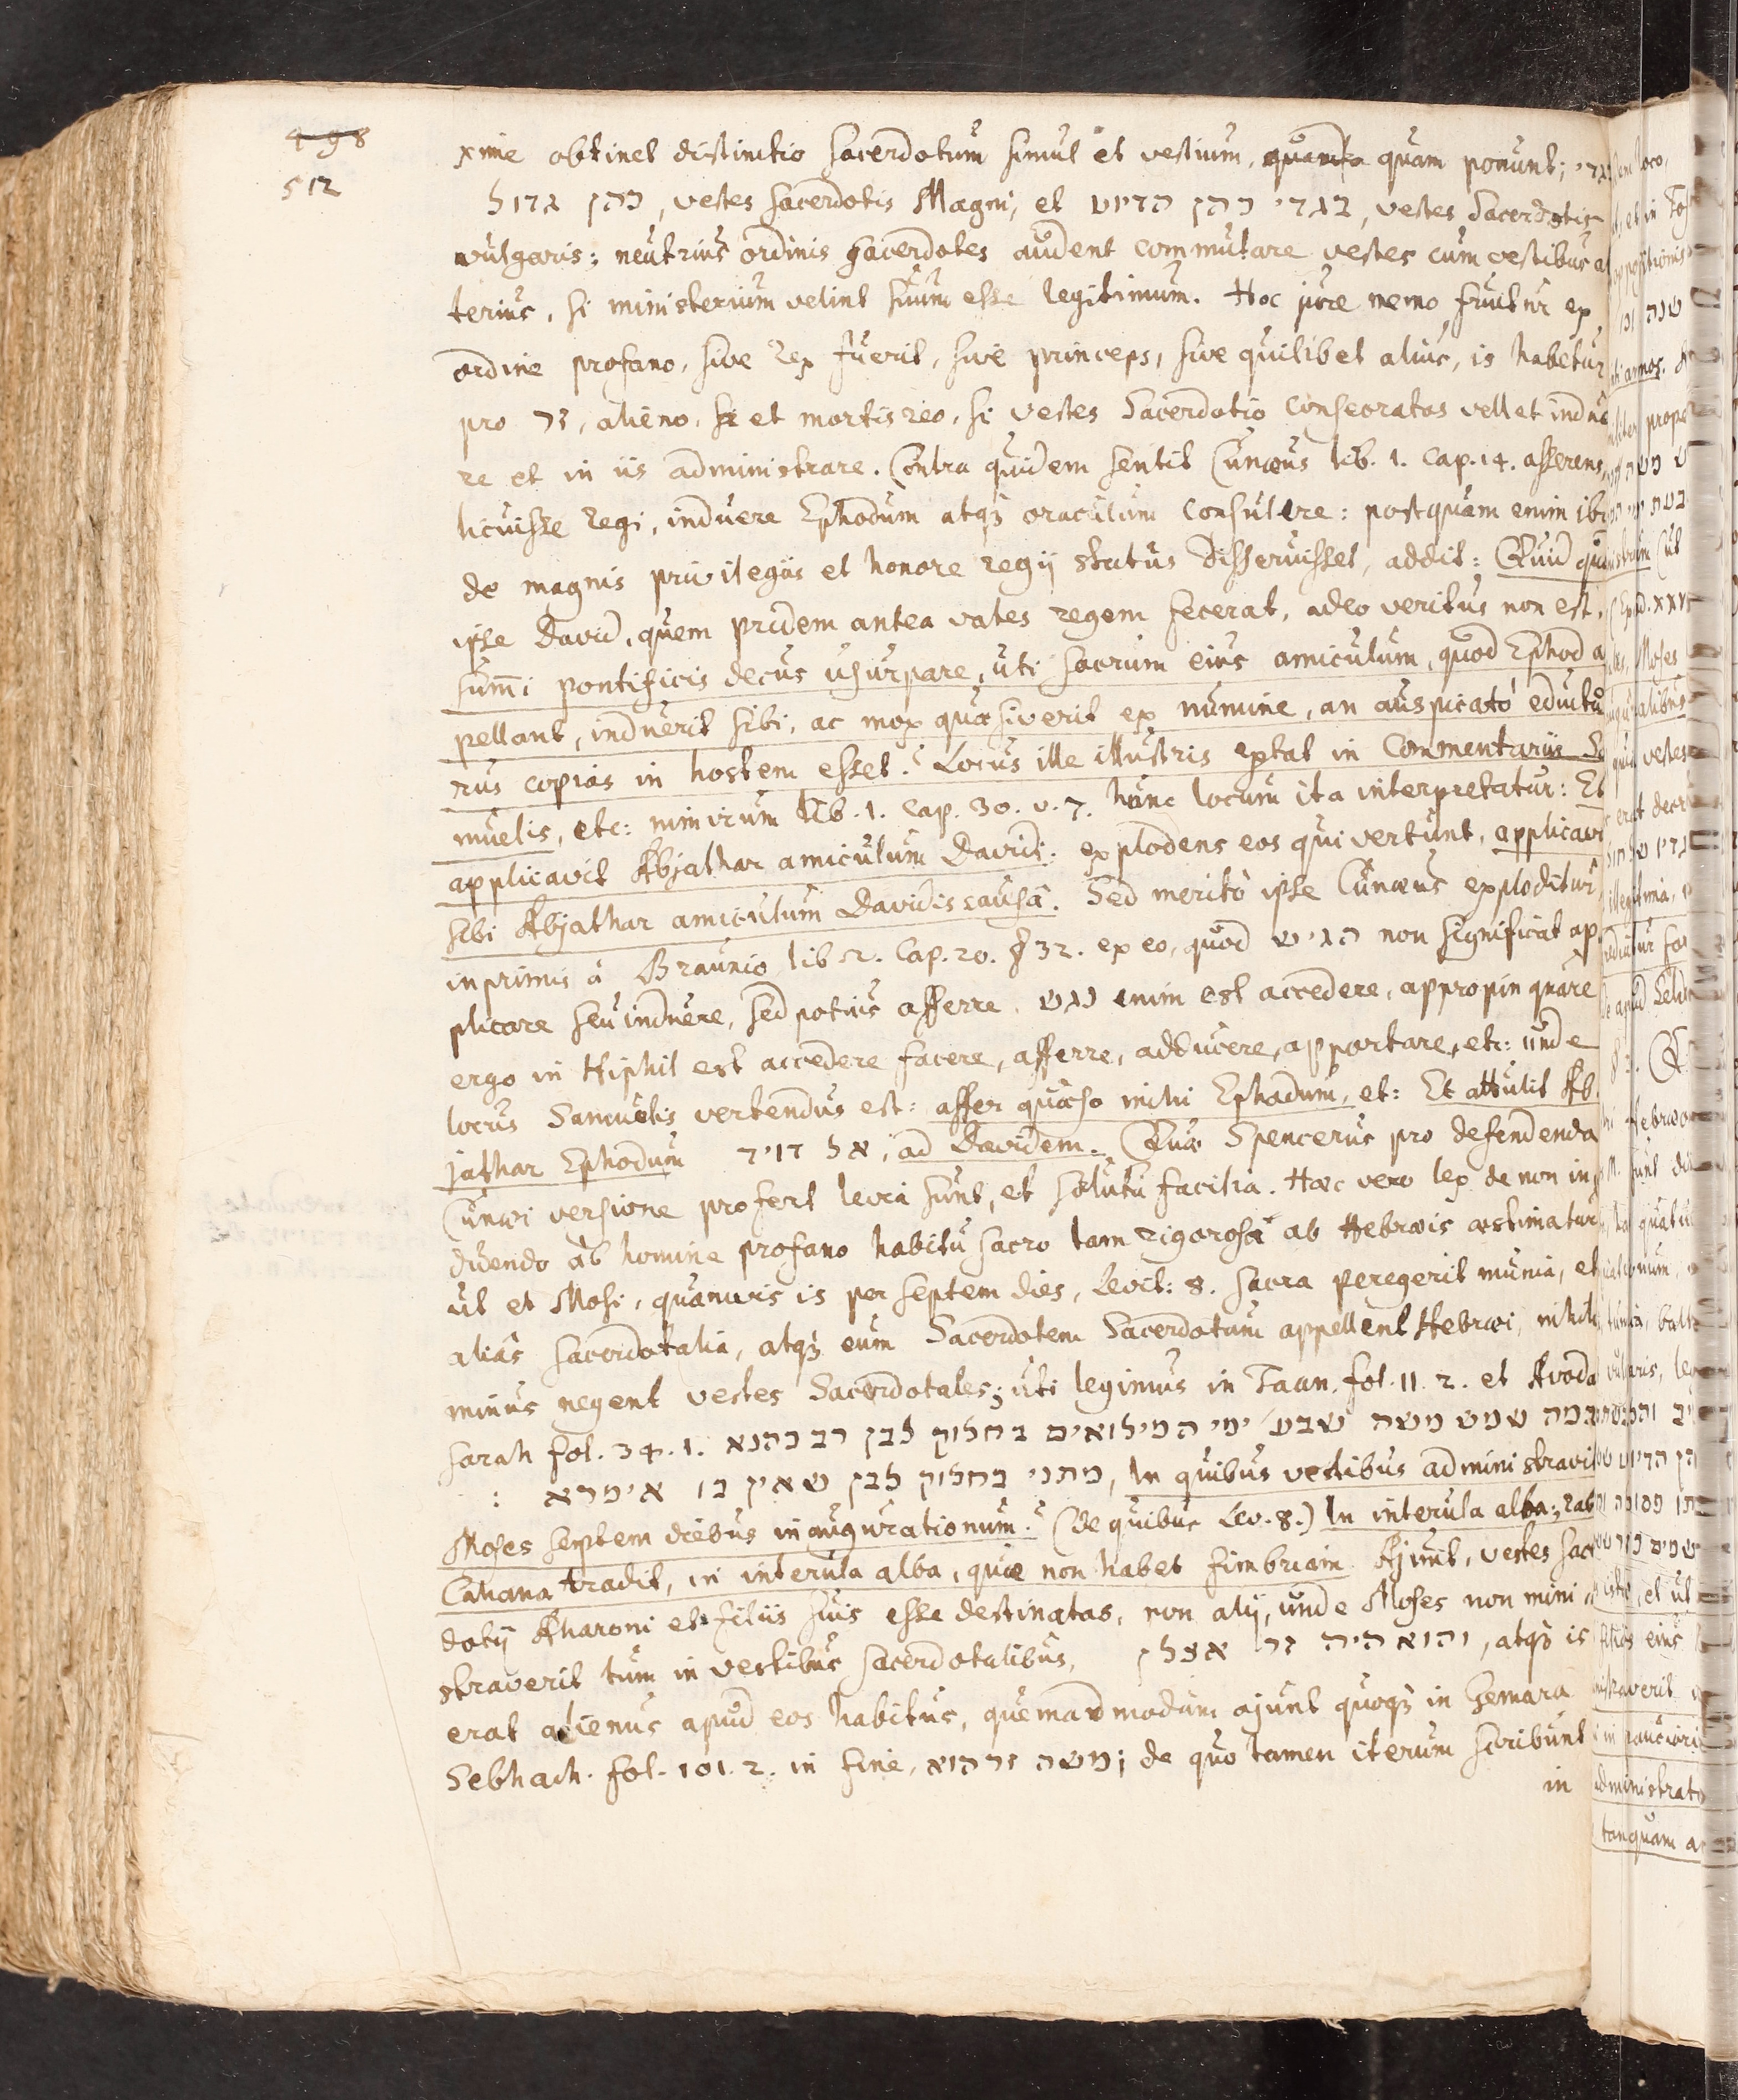 498
512
xime obtinet distinctio sacerdotum simul et vestium, quanta quam ponunt; בגדי
כהן גדול, vestes sacerdotis Magni, et בגדי כהן הדיוט, vestes Sacerdotis
vulgaris; neutrius ordinis sacerdotes audent commutare vestes cum vestibus al
terius, si ministerium velint suum esse legitimum. Hoc jure nemo fruitur ex
ordine profano, sive rex fuerit, sive princeps, sive quilibet alius, is habetur
pro זר, alieno, et mortis reo, si vestes Sacerdotio consecratas vellet indue
re et in iis administrare. Contra quidem sentit Cunæus lib. 1. cap. 14. asserens,
licuisse regi, induere Ephodum atq3 oraculum consulere: postquam enim ibi
de magnis privilegiis et honore regij status disseruisset, addit: Quid quod
ipse David, quem pridem antea vates regem fecerat, adeo veritus non est,
sum̄i pontificis decus usurpare, uti sacrum eius amiculum, quod Ephod a
pellant, induerit sibi, ac mox quæsiverit ex numine, an auspicatò eductu
rus copias in hostem esset? Locus ille illustris extat in Commentariis Sa
muelis, etc: nimirum lib. 1. cap. 30. v. 7. hunc locum ita interpretatur: Et
applicavit Abjathar amiculum Davidi: explodens eos qui vertunt, applicavit
sibi Abjathar amiculum Davidis causâ. Sed meritò ipse Cunæus exploditur
inprimis â Braunio lib 2. cap. 20. § 32. ex eo, quod הגיש non significat ap
plicare seu induere, sed potius afferre. נגש enim est accedere, appropinquare
ergo in Hiphil est accedere facere, afferre, adducere, apportare, etc: unde
locus Samuelis vertendus est: affer quæso mihi Ephodum, et: Et attulit Ab
jathar Ephodum אל דויד, ad Davidem. Quæ Spencerus pro defendenda
Cunæi versione profert levia sunt, et solutu facilia. Hæc vero lex de non in
duendo ab homine profano habitu sacro tam rigorosa ab Hebræis æstimatur
ut et Mosi, quamvis is per septem dies, Levit: 8. sacra peregerit munia, et
alias sacerdotalia, atq3 eum Sacerdotem Sacerdotum appellent Hebræi, nihilo
minus negent vestes Sacerdotales; uti legimus in Taan. fol. 11. 2. et Avoda
Sarah fol. 34. 1. במה שמש משה שבע ימי המילואים בחלוק לבן רב כהנא
מתני בחלוק לבן שאין בו אימרא :, In quibus vestibus administravit
Moses septem diebus inaugurationum? (de quibus Lev. 8.) In interula alba; rab
Cahana tradit, in interula alba, quæ non habet fimbriam. Ajunt, vestes sacer
dotij Aharoni et filiis suis esse destinatas, non alij, unde Moses non mini
straverit tum in vestibus sacerdotalibus, והוא היה זר אצלן, atq3 is
erat alienus apud eos habitus, quemadmodum ajunt quoq3 in Gemara
Sebhach. fol. 101. 2. in fine, משה זר הוא; de quo tamen iterum scribunt
in